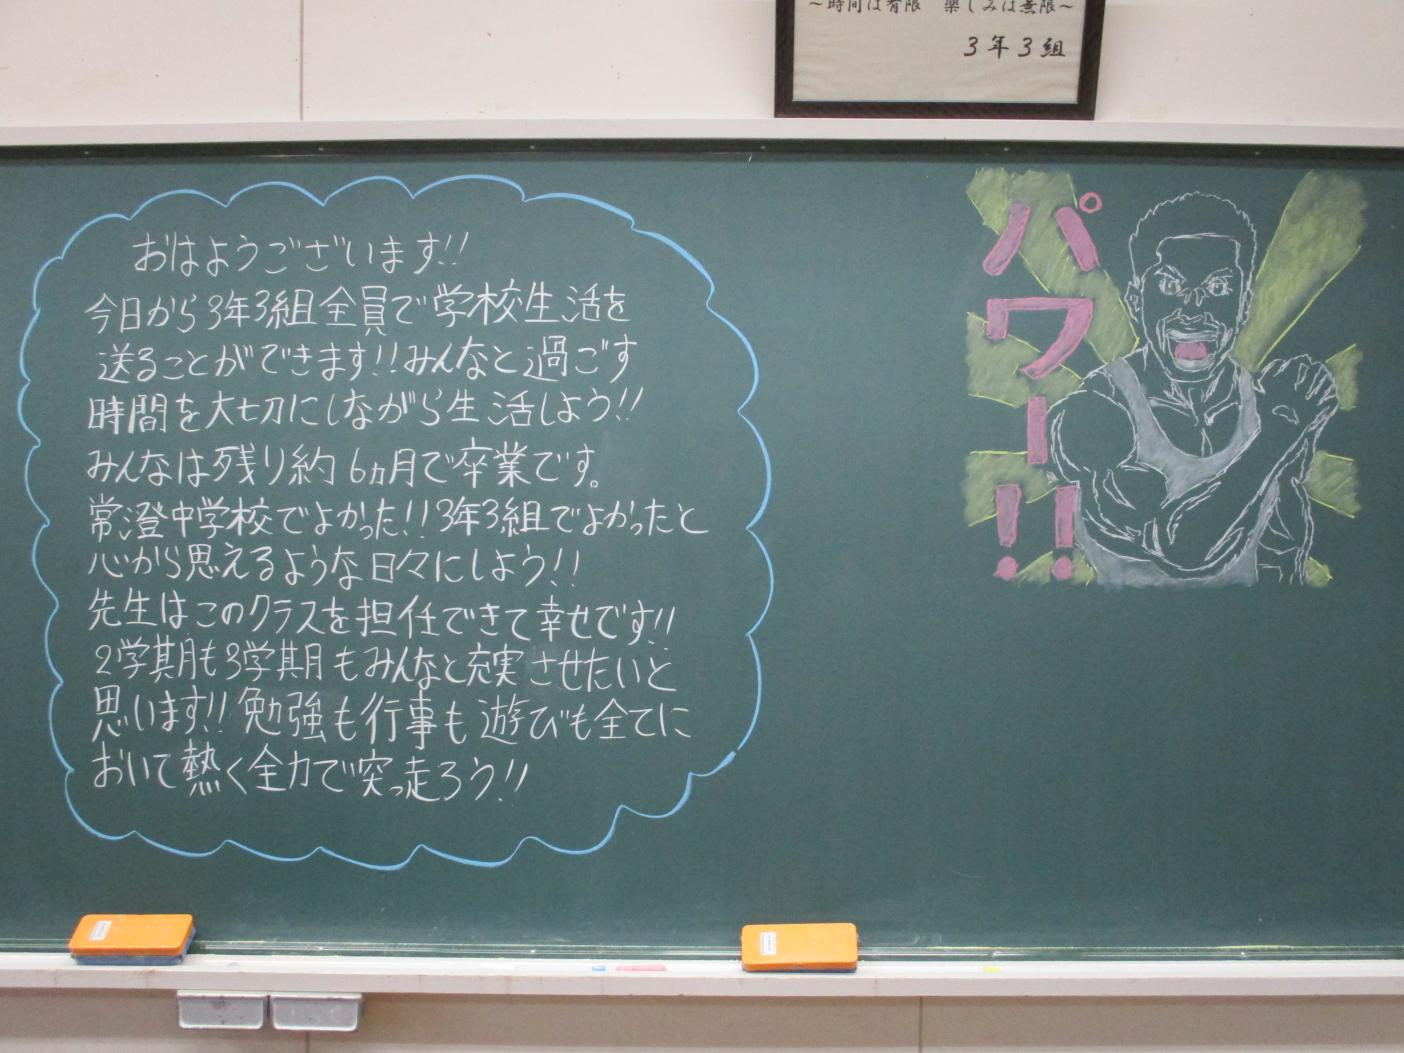 ～時間は有限　楽しみは無限～
3年3組
おはようございます!!
今日から3年3組全員で学校生活を
送ることができます!!みんなと過ごす
時間を大切にしながら生活しよう!!
みんなは残り約6ヵ月で卒業です。
常澄中学校でよかった!!3年3組でよかったと
心から思えるような日々にしよう!!
先生はこのクラスを担任できて幸せです!!
2学期も3学期もみんなと充実させたいと
思います!!勉強も行事も遊びも全てに
おいて熱く全力で突っ走ろう!!
パワー!!